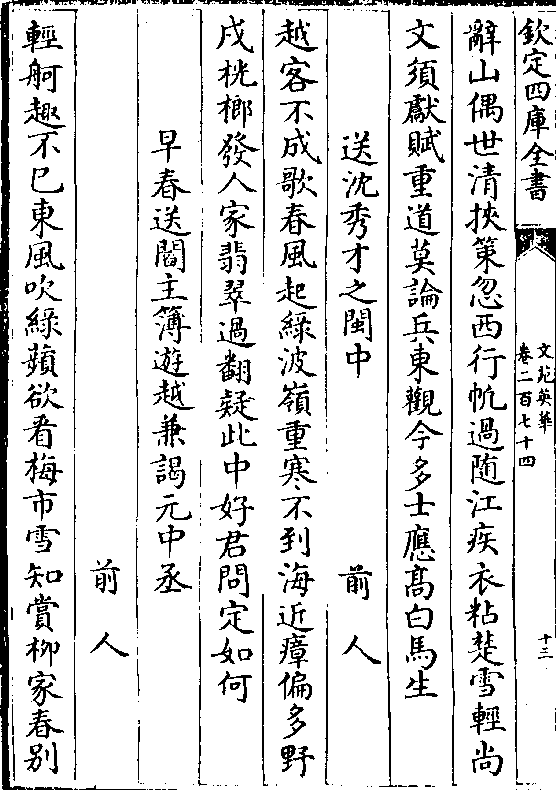 欽定四庫全書
文苑英華
卷二百七十四
十三
辭山偶世清挾策忽西行帆過随江疾衣粘楚雪輕尚
文須獻賦重道莫論兵東觀今多士應髙白馬生
送沈秀才之閩中
前人
越客不成歌春風起緑波嶺重寒不到海近瘴偏多野
戍桄榔發人家翡翠過翻疑此中好君問定如何
早春送閻主簿遊越兼謁元中丞
前人
輕舸趣不已東風吹緑蘋欲看梅市雪知賞柳家春别